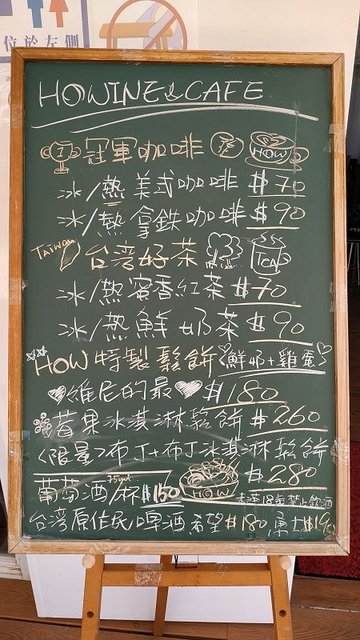 位於左側
HOWINE & CAFE
1 冠軍咖啡 HOW
冰/熱 美式咖啡 $70
冰/熱 拿鐵咖啡 $90
TAIWAN 台湾好茶 TEA
冰/熱蜜香紅茶 $70
冰/熱鮮奶茶 $90
HOW 特製鬆餅 鮮奶+雞蛋
維尼的最 $180
莓果冰淇淋鬆餅 $260
<限量>布丁+布丁冰淇淋鬆餅
$280
葡萄酒/杯 75ml $150 HOW
未滿18歲禁止飲酒
台湾原住民啤酒 希望$180 勇士$190